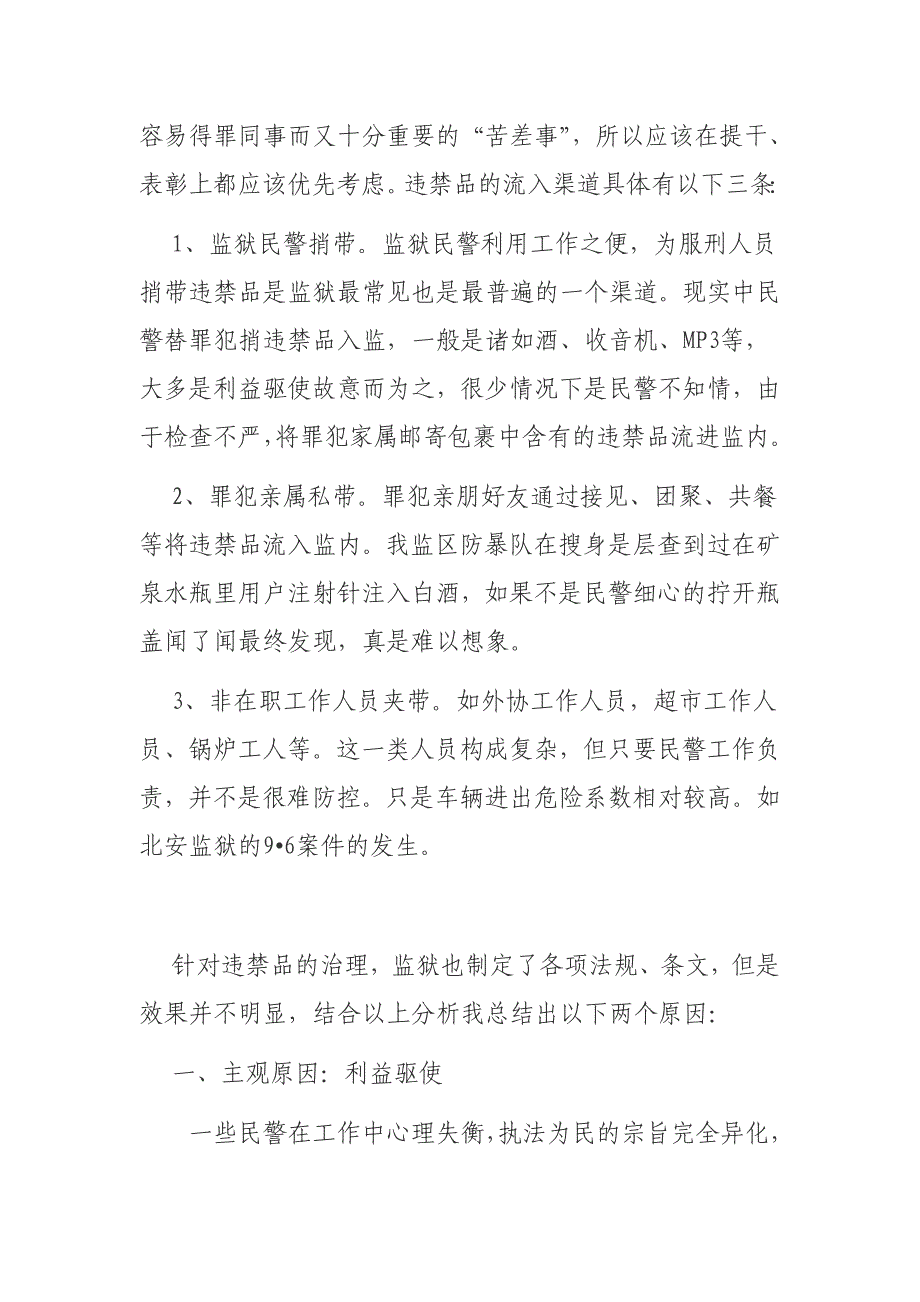 容易得罪同事而又十分重要的“苦差事”，所以应该在提干、
表彰上都应该优先考虑。违禁品的流入渠道具体有以下三条：
1、监狱民警捎带。监狱民警利用工作之便，为服刑人员
捎带违禁品是监狱最常见也是最普遍的一个渠道。现实中民
警替罪犯捎违禁品入监，一般是诸如酒、收音机、MP3等，
大多是利益驱使故意而为之，很少情况下是民警不知情，由
于检查不严，将罪犯家属邮寄包裹中含有的违禁品流进监内。
2、罪犯亲属私带。罪犯亲朋好友通过接见、团聚、共餐
等将违禁品流入监内。我监区防暴队在搜身是层查到过在矿
泉水瓶里用户注射针注入白酒，如果不是民警细心的拧开瓶
盖闻了闻最终发现，真是难以想象。
3、非在职工作人员夹带。如外协工作人员，超市工作人
员、锅炉工人等。这一类人员构成复杂，但只要民警工作负
责，并不是很难防控。只是车辆进出危险系数相对较高。如
北安监狱的9•6案件的发生。
针对违禁品的治理，监狱也制定了各项法规、条文，但是
效果并不明显，结合以上分析我总结出以下两个原因：
一、主观原因：利益驱使
一些民警在工作中心理失衡，执法为民的宗旨完全异化，